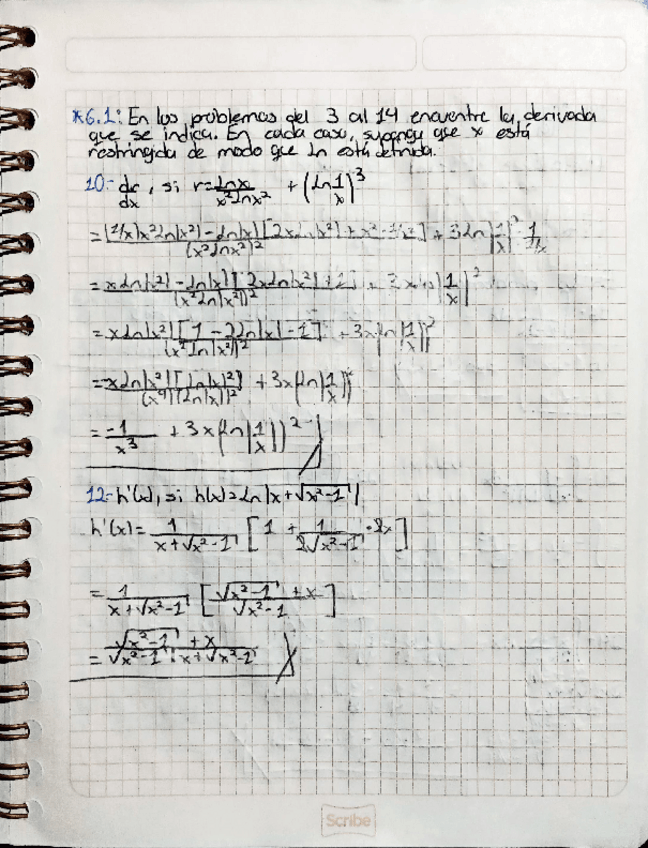 *6.1: En los problemas del 3 al 14 encuentre la derivada
que se indica. En cada caso, suponga que x está
restringida de modo que ln está definida.
10.- dr/dx, si r = lnx/x²lnx² + (ln 1/x)³
= (1/x)x²ln|x²| - ln|x|[2x ln|x²| + x²
(x²lnx²)² + 3 ln|1/x|²
= x ln|x²| - ln|x|[2x ln|x²| +
(x²ln|x²|)² + 3x ln|1/x|²
= x ln|x²|[1 - 2ln|x| - 1]/(x²ln|x²|)² + 3x(ln|1/x|)²
= x ln|x²|[ln|x|²]/(x⁴)(ln|x|)² + 3x(ln|1/x|)²
= -1/x³ + 3x(ln|1/x|)²
12.- h'(x), si h(x) = ln|x + √x²-1|
h'(x) = 1/x+√x²-1 [1 + 1/2√x²-1 · 2x]
= 1/x+√x²-1 [√x²-1 + x/√x²-1]
= √x²-1 + x/√x²-1 · x+√x²-1
Scribe